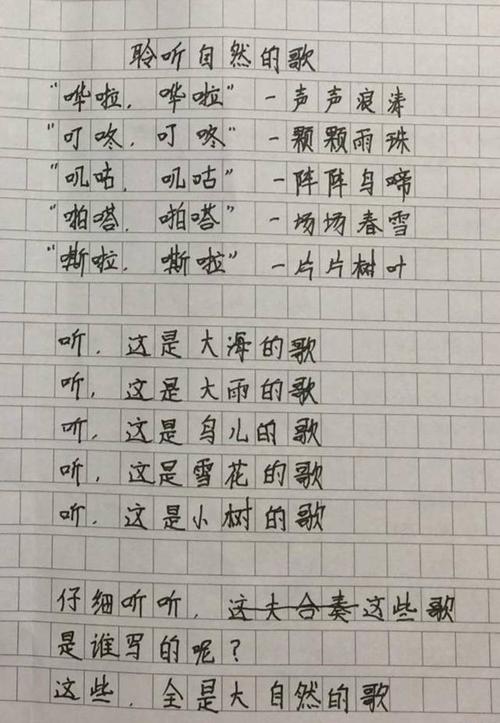 聆听自然的歌
"哗啦，哗啦"一声声浪涛
"叮咚，叮咚"一颗颗雨珠
"叽咕，叽咕"一阵阵鸟啼
"啪嗒，啪嗒"一场场春雪
"嘶啦，嘶啦"一片片树叶
听，这是大海的歌
听，这是大雨的歌
听，这是鸟儿的歌
听，这是雪花的歌
听，这是小树的歌
仔细听听，这大合奏这些歌
是谁写的呢？
这些，全是大自然的歌